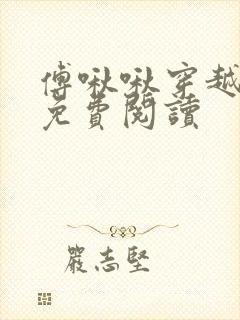 傅啾啾穿越
免費閱讀
嚴志堅